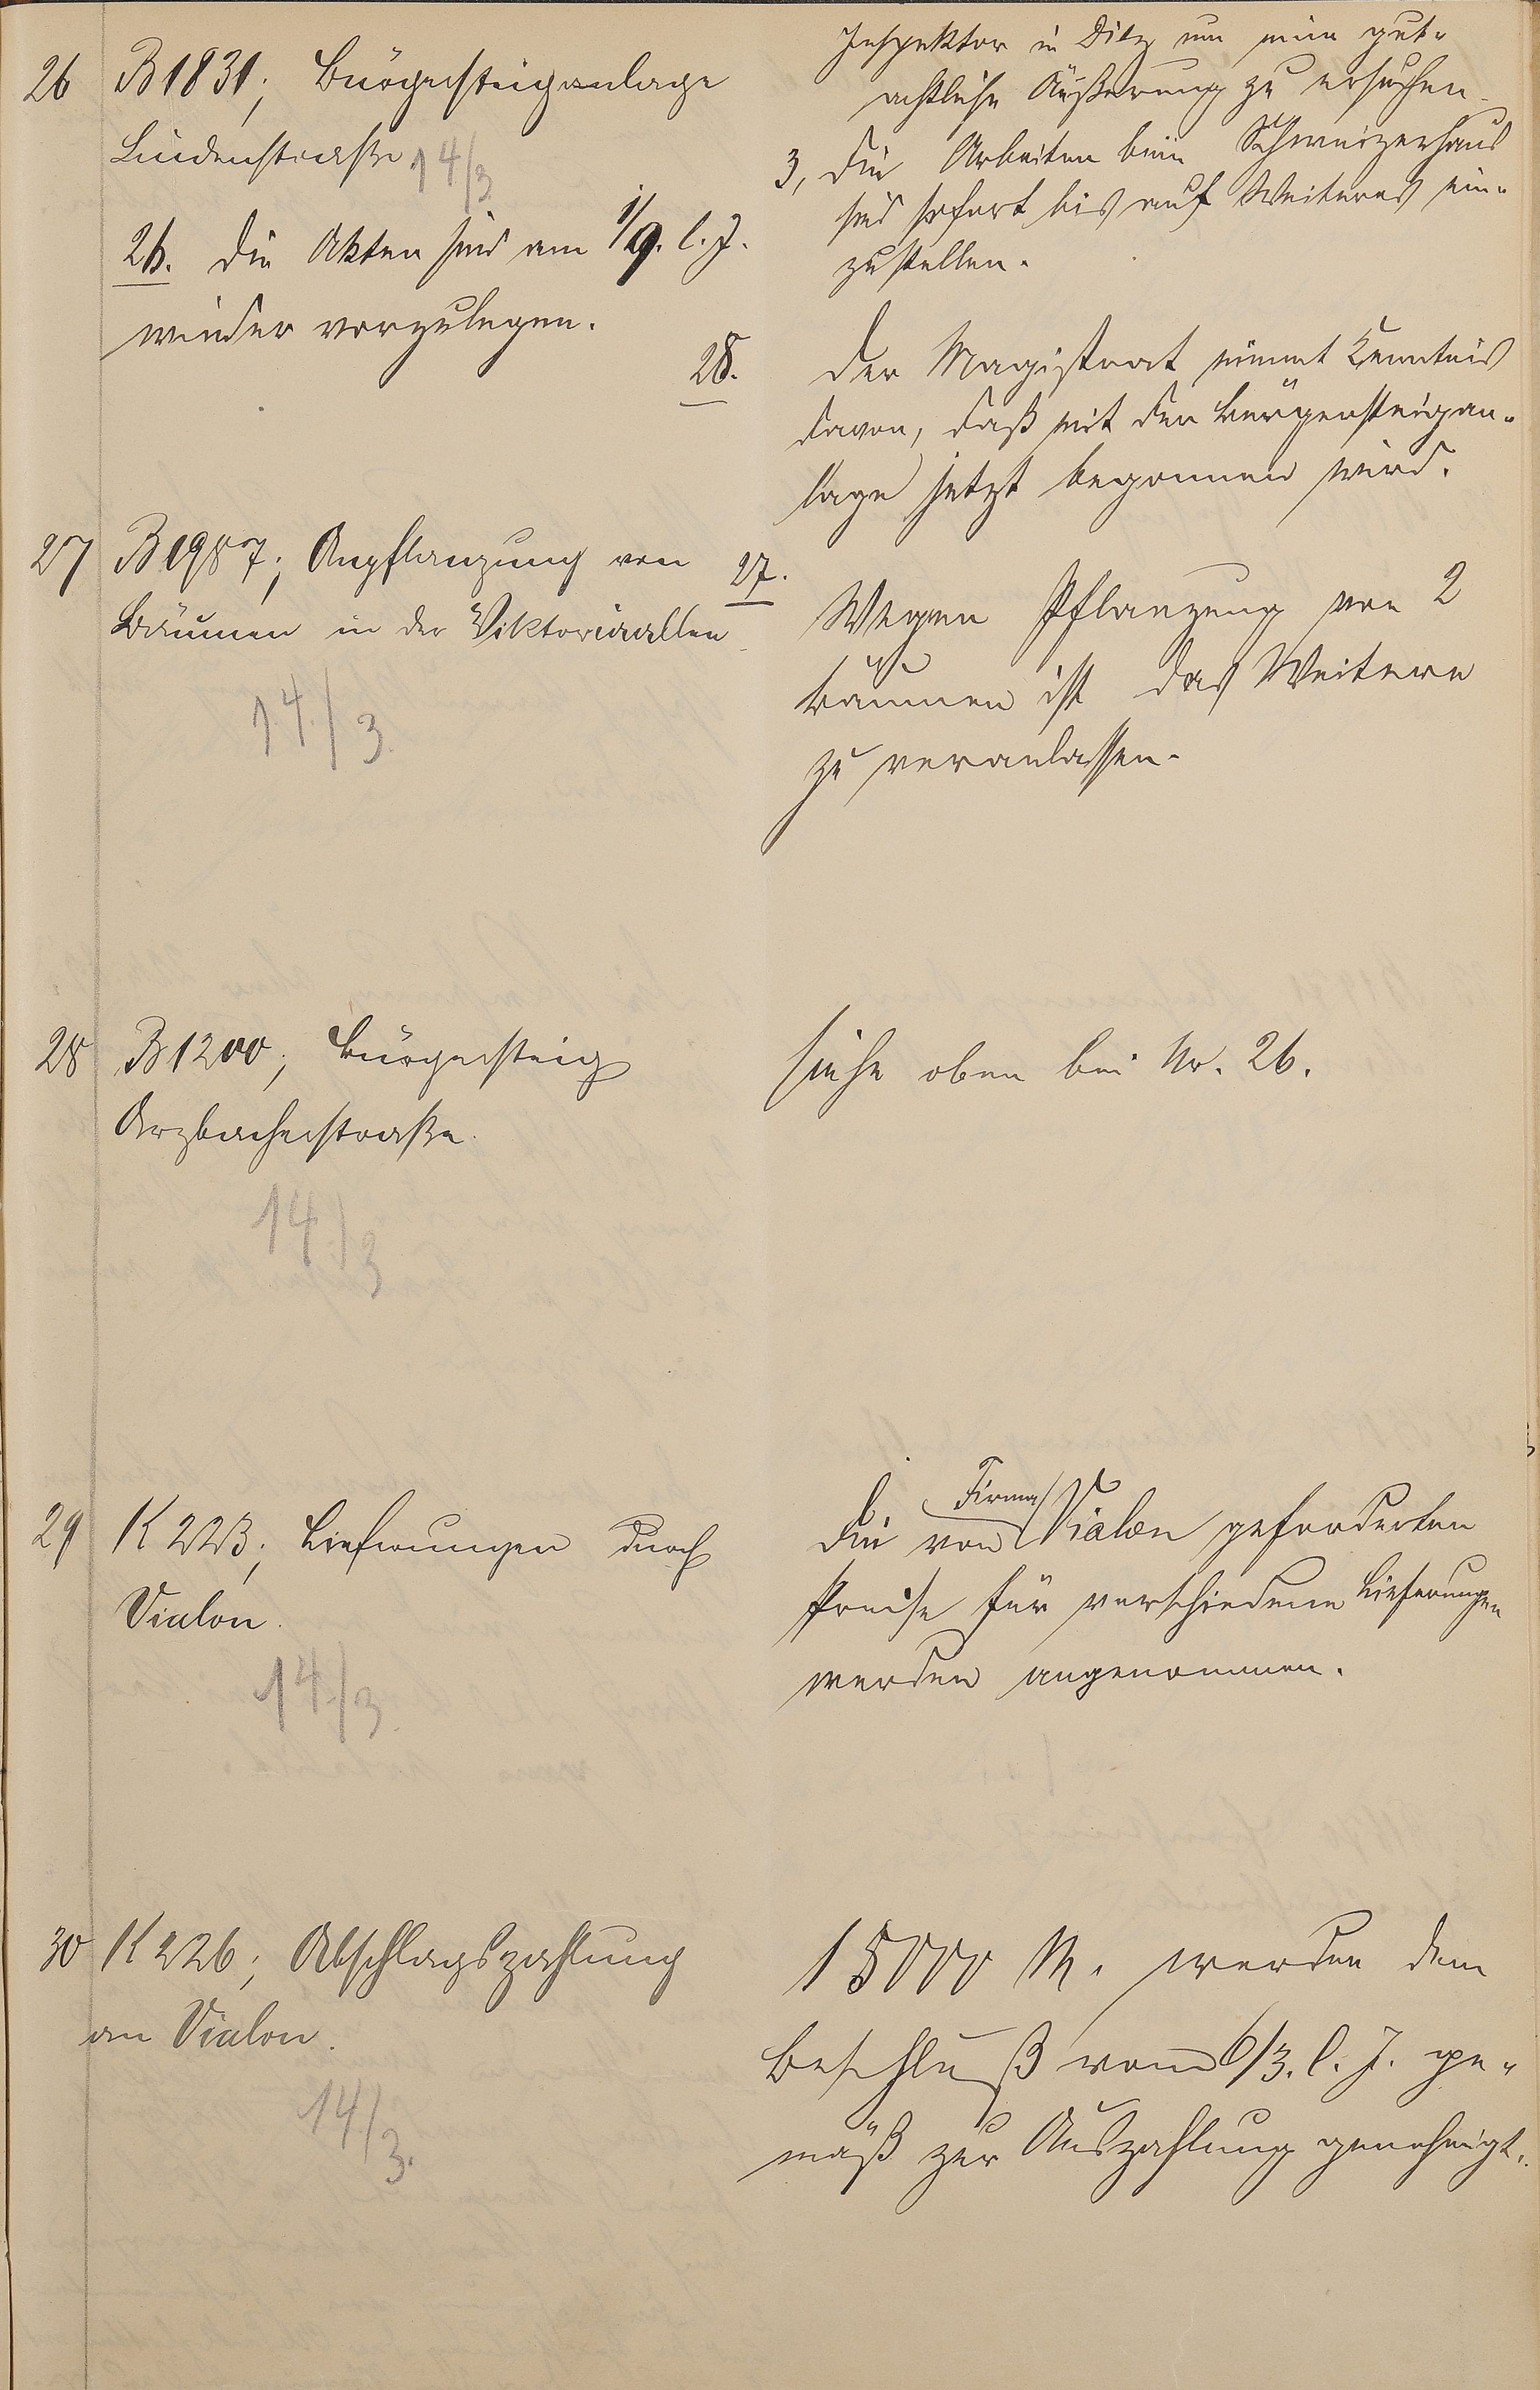 Inspektor in Diez um eine gut-
achtliche Äußerung zu ersuchen.
3, Die Arbeiten beim Schweizerhaus
sind sofort bis auf Weiteres ein-
zustellen.
26 B 1831; Bürgersteiganlage
Lindenstraße 14/3
26. Die Akten sind am 1/9. l. J.
wieder vorzulegen.
28. Der Magistrat nimmt Kenntnis
davon, daß mit der Bürgersteigan-
lage jetzt begonnen wird.
27 B 1987; Anpflanzung von
Bäumen in der Viktoriaallee
14/3
27. Wegen Pflanzung von 2
Bäumen ist das Weitere
zu veranlassen.
28 B 1200; Bürgersteig
Arzbacherstraße.
14/3
Siehe oben bei Nr. 26.
29 K 223; Lieferungen durch
Vialon.
14/3.
Die von Firma Vialon geforderten
Preise für verschiedene Lieferungen
werden angenommen.
30 K 226; Abschlagszahlung
an Vialon.
14/3.
15000 M. werden dem
Beschluß vom 6/3. l. J. ge-
mäß zur Auszahlung genehmigt.